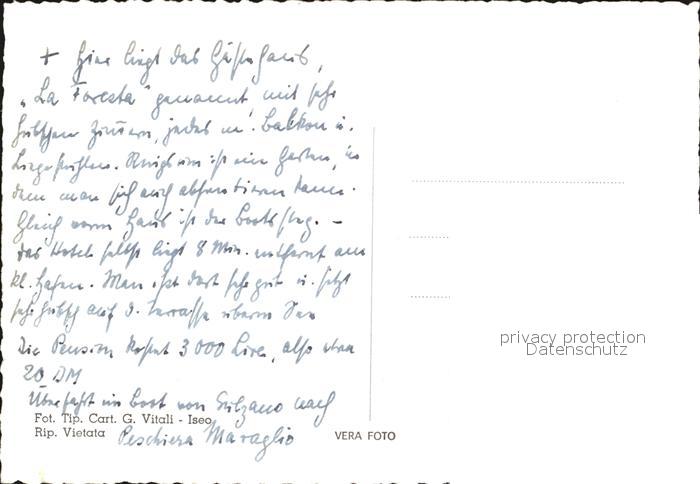 + Hier liegt das Gästehaus,
„La Foresta“ genannt, mit sehr
hübschen Zimmern, jedes m. Balkon u.
Liegestühlen. Ringsum ist ein Garten, in
dem man sich auch absentieren kann.
Gleich vorm Haus ist der Bootssteg. –
das Hotel selbst liegt 8 Min. entfernt am
kl. Hafen. Man isst dort sehr gut u. sitzt
sehr hübsch auf d. Terrasse überm See
Die Pension kostet 3000 Lire, also etwa
20 DM
Überfahrt im Boot von Sulzano nach
Peschiera Maraglio
Fot. Tip. Cart. G. Vitali - Iseo
Rip. Vietata
VERA FOTO
privacy protection
Datenschutz